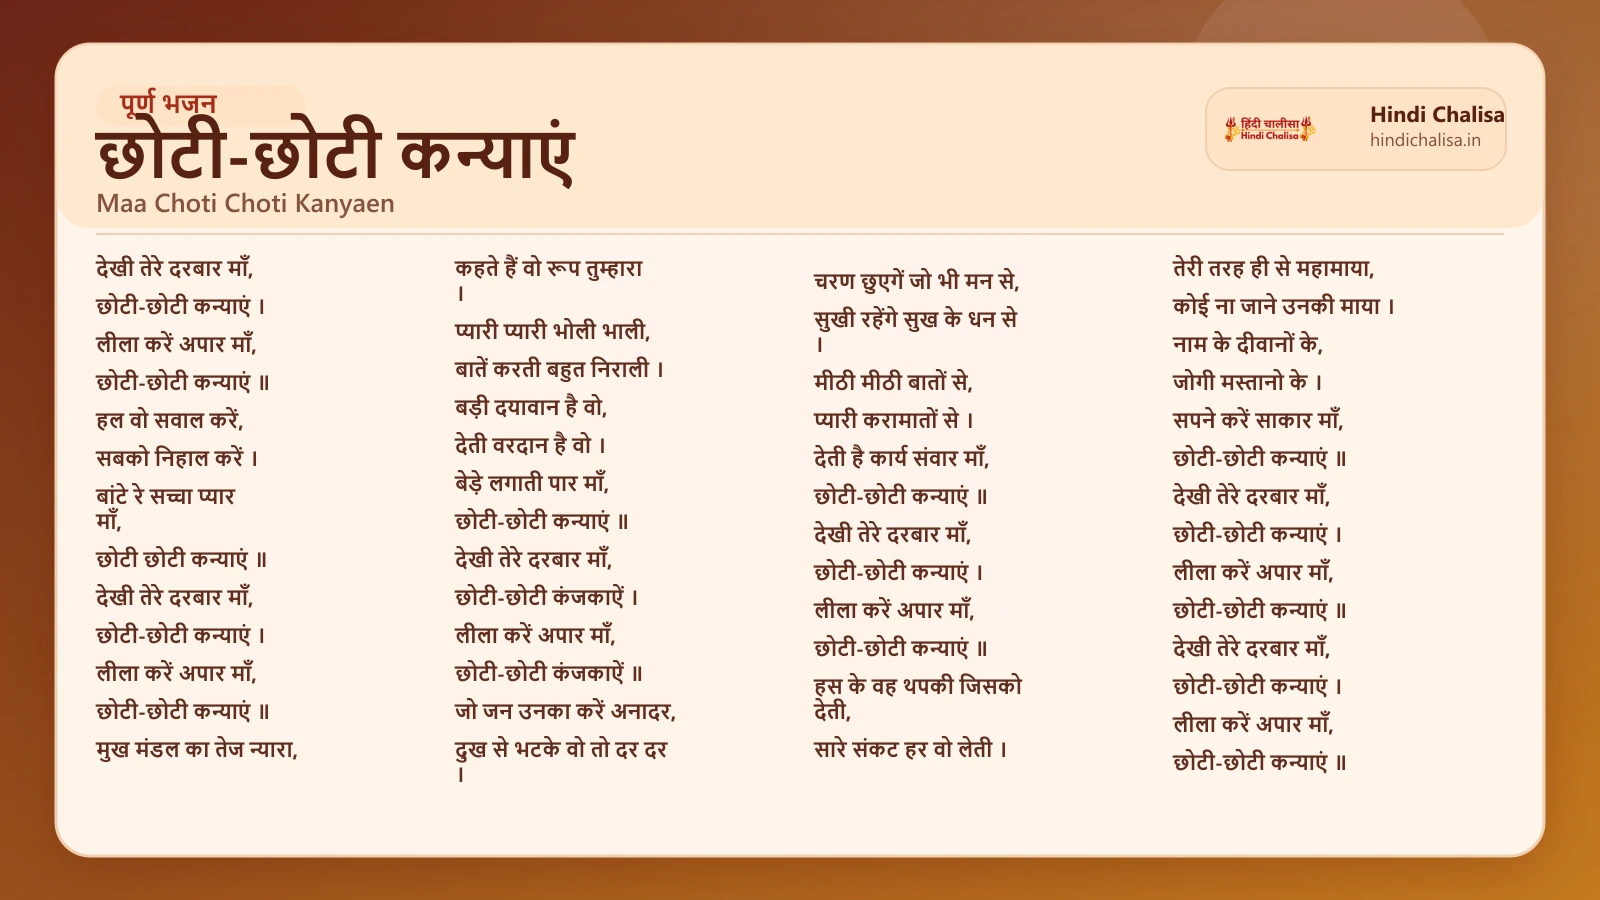 पूर्ण भजन
छोटी-छोटी कन्याएं
Maa Choti Choti Kanyaen
हिंदी चालीसा
Hindi Chalisa
Hindi Chalisa
hindichalisa.in
देखी तेरे दरबार माँ,
छोटी-छोटी कन्याएं ।
लीला करें अपार माँ,
छोटी-छोटी कन्याएं ॥
हल वो सवाल करें,
सबको निहाल करें ।
बांटे रे सच्चा प्यार
माँ,
छोटी छोटी कन्याएं ॥
देखी तेरे दरबार माँ,
छोटी-छोटी कन्याएं ।
लीला करें अपार माँ,
छोटी-छोटी कन्याएं ॥
मुख मंडल का तेज न्यारा,
कहते हैं वो रूप तुम्हारा
।
प्यारी प्यारी भोली भाली,
बातें करती बहुत निराली ।
बड़ी दयावान है वो,
देती वरदान है वो ।
बेड़े लगाती पार माँ,
छोटी-छोटी कन्याएं ॥
देखी तेरे दरबार माँ,
छोटी-छोटी कंजकाऐं ।
लीला करें अपार माँ,
छोटी-छोटी कंजकाऐं ॥
जो जन उनका करें अनादर,
दुख से भटके वो तो दर दर
।
चरण छुएगें जो भी मन से,
सुखी रहेंगे सुख के धन से
।
मीठी मीठी बातों से,
प्यारी करामातों से ।
देती है कार्य संवार माँ,
छोटी-छोटी कन्याएं ॥
देखी तेरे दरबार माँ,
छोटी-छोटी कन्याएं ।
लीला करें अपार माँ,
छोटी-छोटी कन्याएं ॥
हस के वह थपकी जिसको
देती,
सारे संकट हर वो लेती ।
तेरी तरह ही से महामाया,
कोई ना जाने उनकी माया ।
नाम के दीवानों के,
जोगी मस्तानो के ।
सपने करें साकार माँ,
छोटी-छोटी कन्याएं ॥
देखी तेरे दरबार माँ,
छोटी-छोटी कन्याएं ।
लीला करें अपार माँ,
छोटी-छोटी कन्याएं ॥
देखी तेरे दरबार माँ,
छोटी-छोटी कन्याएं ।
लीला करें अपार माँ,
छोटी-छोटी कन्याएं ॥